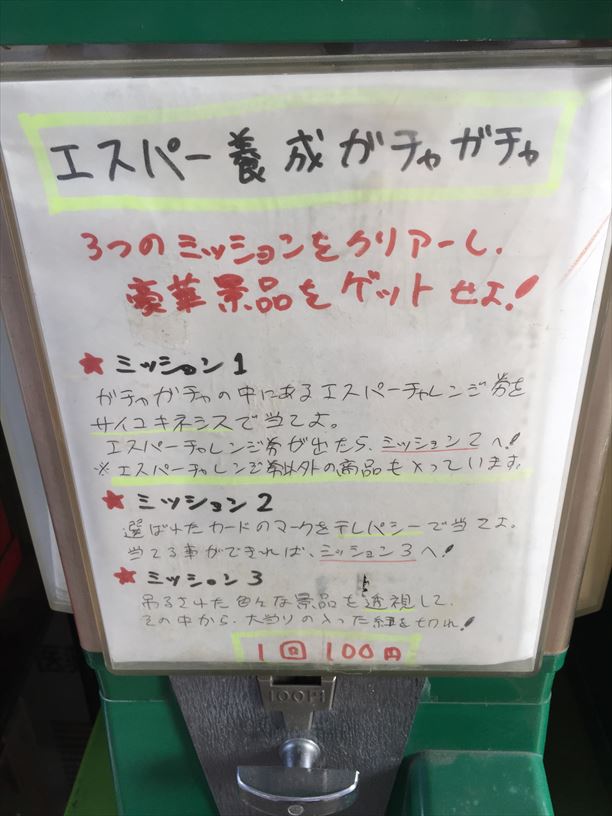 エスパー養成ガチャガチャ
3つのミッションをクリアーし、
豪華景品をゲットせよ!
★ ミッション1
ガチャガチャの中にあるエスパーチャレンジ券を
サイコキネシスで当てよ。
エスパーチャレンジ券が出たら、ミッション2へ!
※エスパーチャレンジ券以外の商品も入っています。
★ ミッション2
選ばれたカードのマークをテレパシーで当てよ。
当てる事ができれば、ミッション3へ!
★ ミッション3
吊るされた色々な景品を透視して、
その中から、大当りの入った紐を切れ!
1回100円
100円